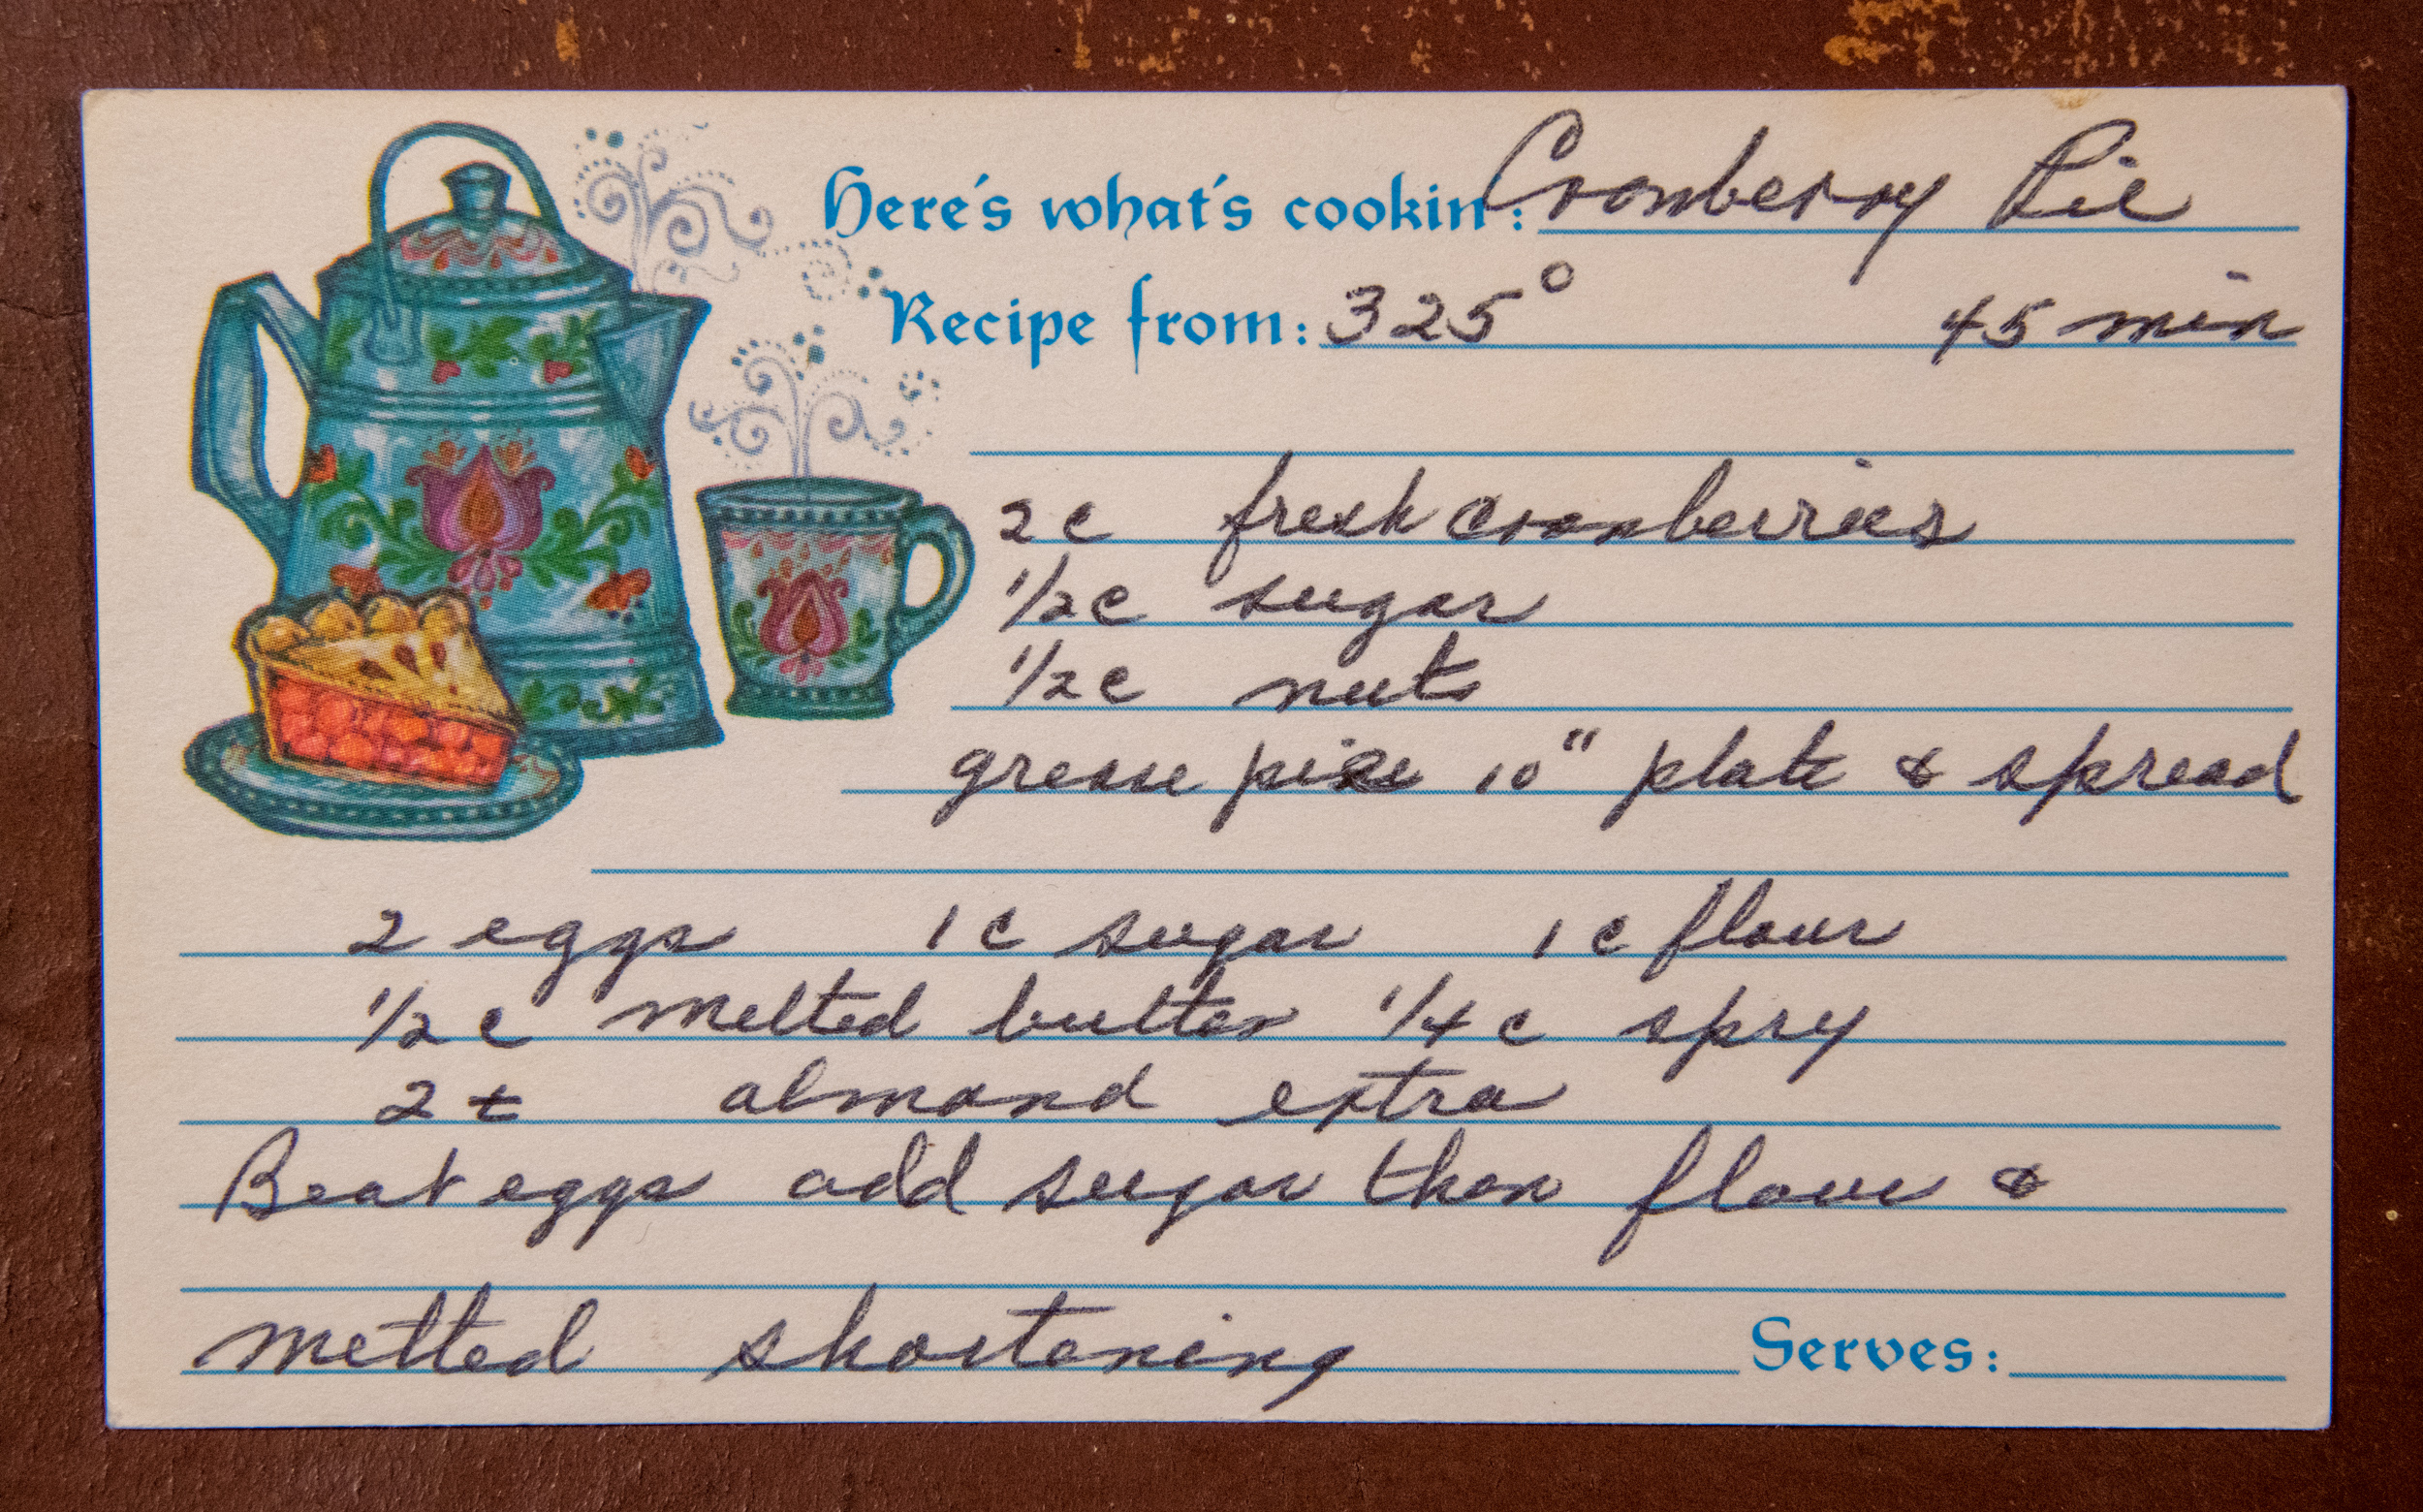 Here's what's cookin: Cranberry Pie
Recipe from: 325° 45 min
2 c fresh cranberries
1/2 c sugar
1/2 c nuts
grease 10" plate & spread
2 eggs 1 c sugar 1 c flour
1/2 c melted butter 1/4 c spry
2 t almond extra
Beat eggs add sugar then flour &
melted shortening Serves: